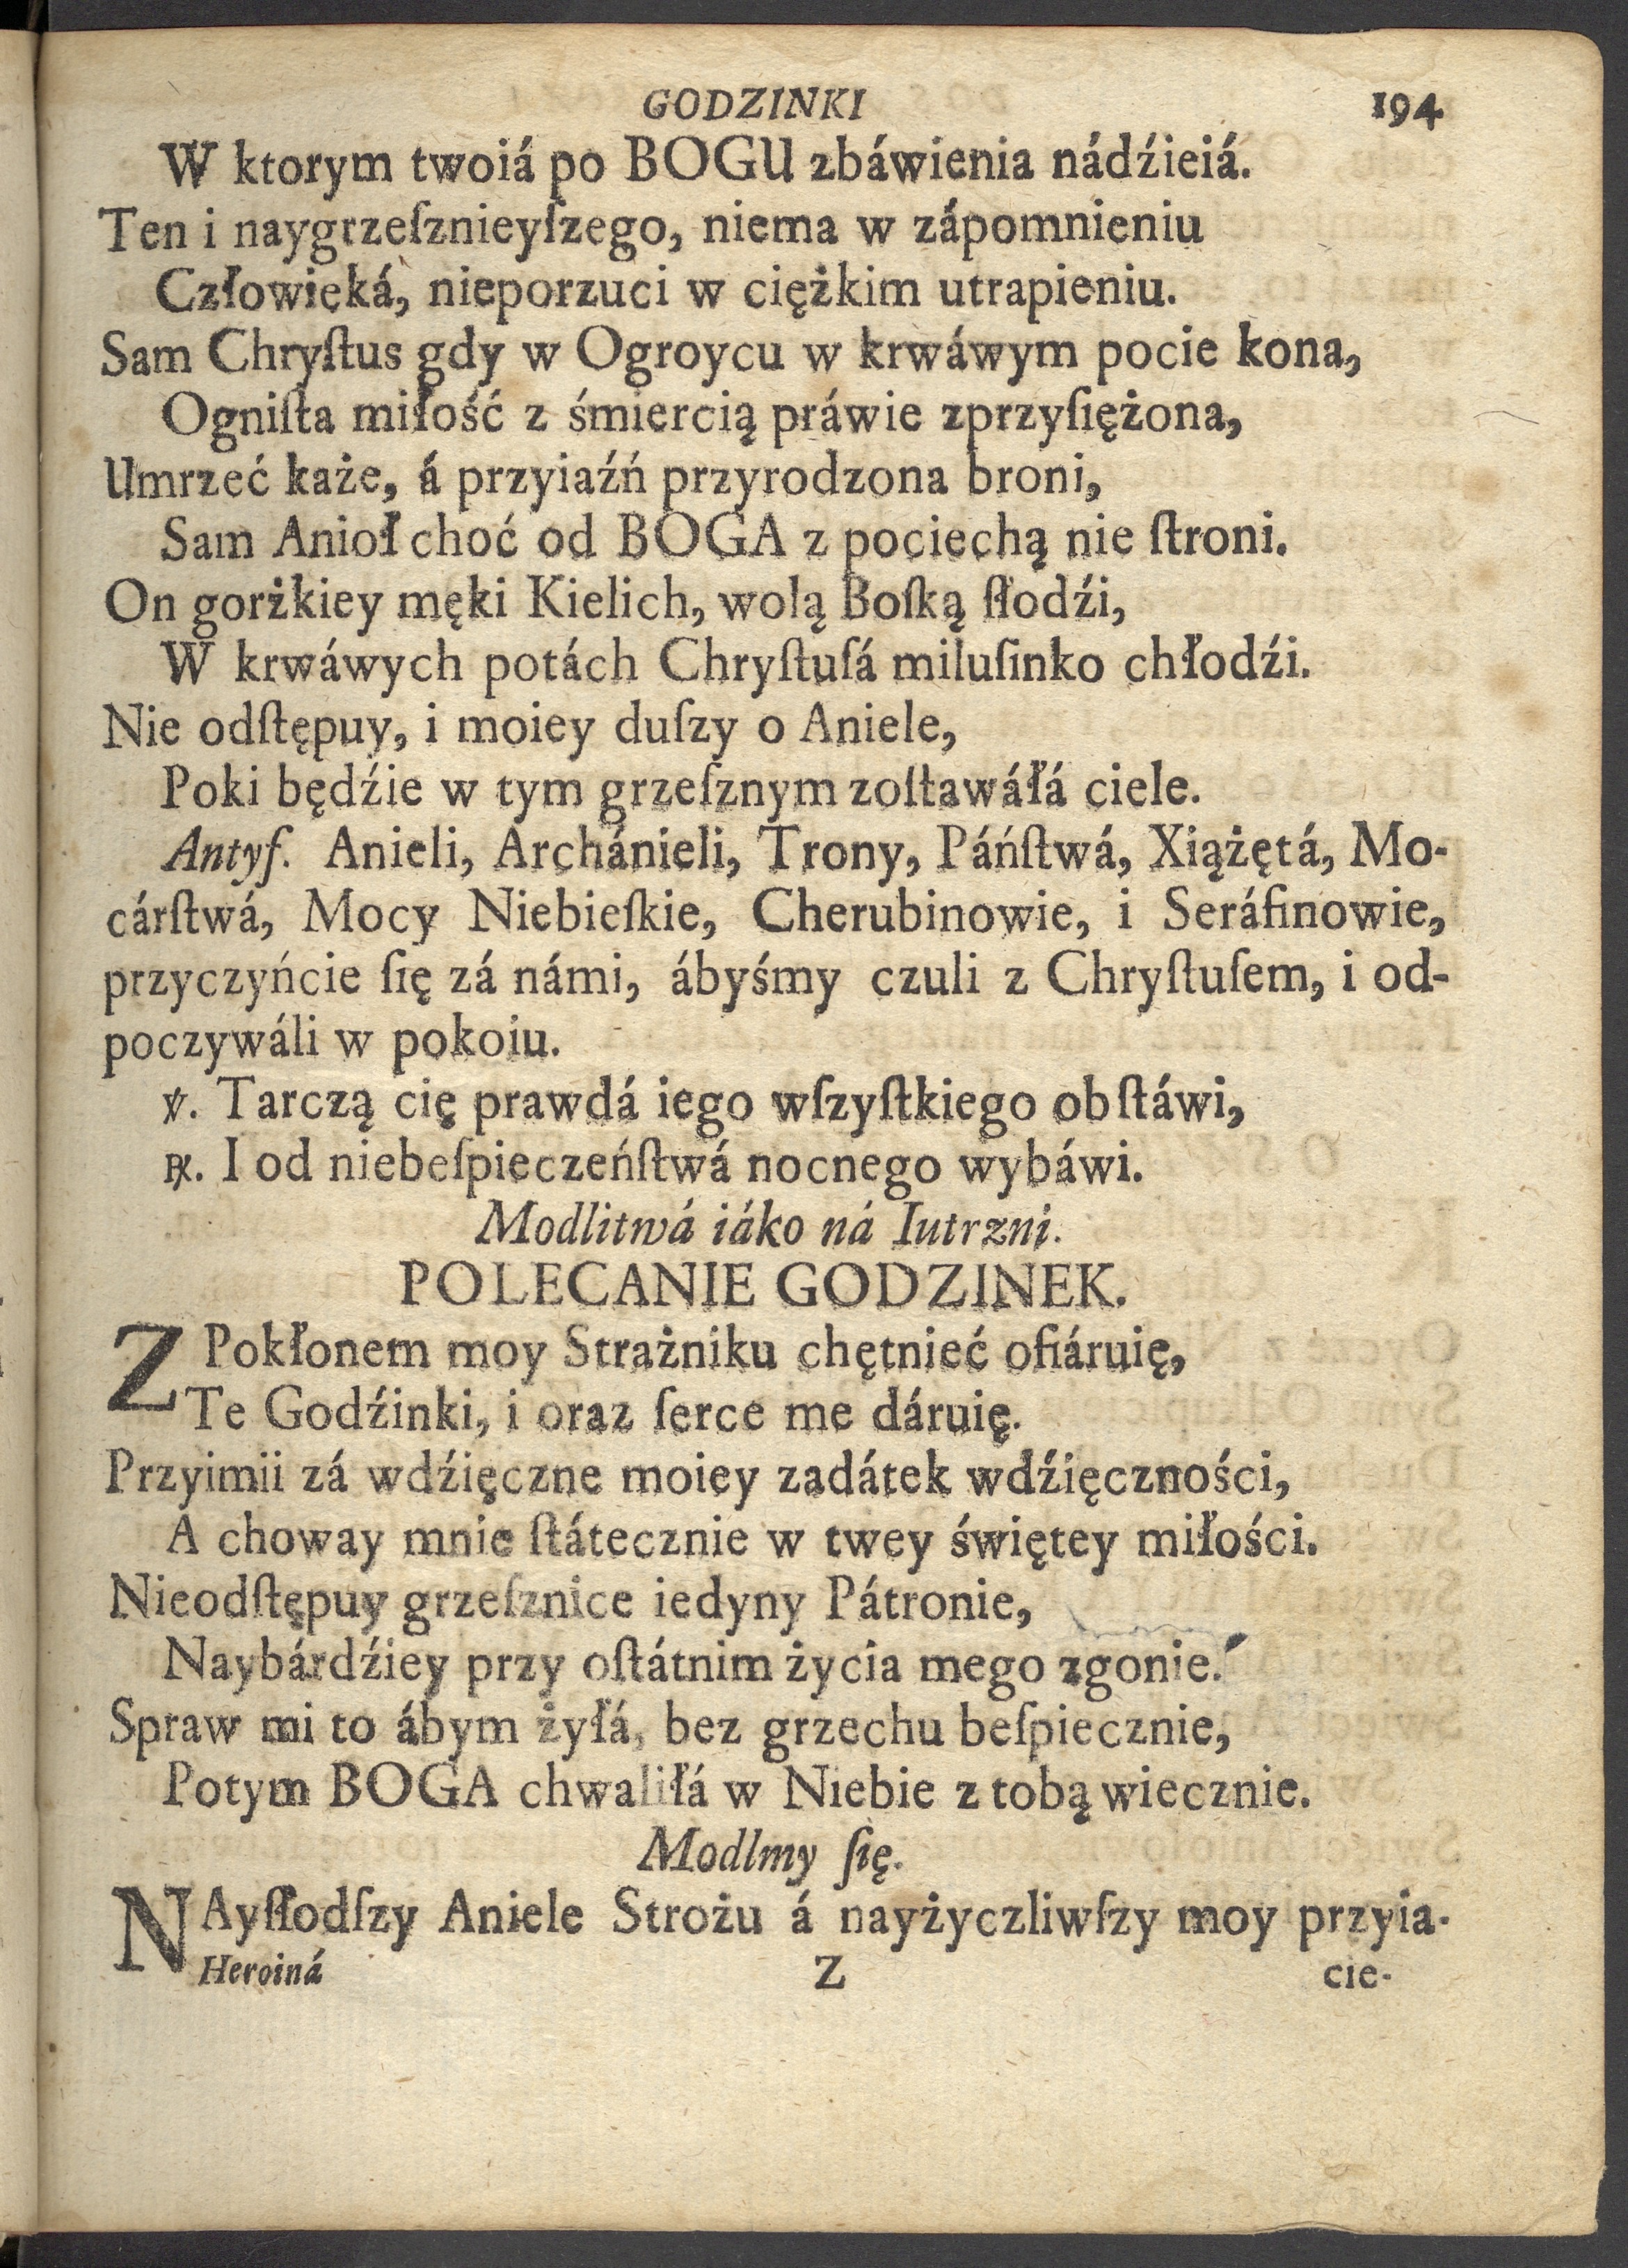 GODZINKI 194
W ktorym twoiá po BOGU zbáwienia nádźieiá.
Ten i naygrzeſznieyſzego, niema w zápomnieniu
Człowięká, nieporzuci w ciężkim utrapieniu.
Sam Chryſtus gdy w Ogroycu w krwáwym pocie kona,
Ogniſta miłość z śmiercią práwie zprzyſiężona,
Umrzeć każe, á przyiaźń przyrodzona broni,
Sam Anioł choć od BOGA z pociechą nie ſtroni.
On gorżkiey męki Kielich, wolą Boſką ſłodźi,
W krwáwych potách Chryſtuſá miluſinko chłodźi.
Nie odſtępuy, i moiey duſzy o Aniele,
Poki będźie w tym grzeſznym zoſtawáłá ciele.
Antyf. Anieli, Archánieli, Trony, Páńſtwá, Xiążętá, Mo-
cárſtwá, Mocy Niebieſkie, Cherubinowie, i Seráfinowie,
przyczyńcie ſię zá námi, ábyśmy czuli z Chryſtuſem, i od-
poczywáli w pokoiu.
℣. Tarczą cię prawdá iego wſzyſtkiego obſtáwi,
℟. I od niebeſpieczeńſtwá nocnego wybáwi.
Modlitwá iáko ná Iutrzni.
POLECANIE GODZINEK.
Z Pokłonem moy Strażniku chętnieć ofiáruię,
Te Godźinki, i oraz ſerce me dáruię.
Przyimii zá wdźięczne moiey zadátek wdźięczności,
A choway mnie ſtátecznie w twey świętey miłości.
Nieodſtępuy grzeſznice iedyny Pátronie,
Naybárdźiey przy oſtátnim życia mego zgonie.
Spraw mi to ábym żyłá, bez grzechu beſpiecznie,
Potym BOGA chwaliłá w Niebie z tobą wiecznie.
Modlmy ſię.
NAyſłodſzy Aniele Strożu á nayżyczliwſzy moy przyia-
Heroiná Z cie-